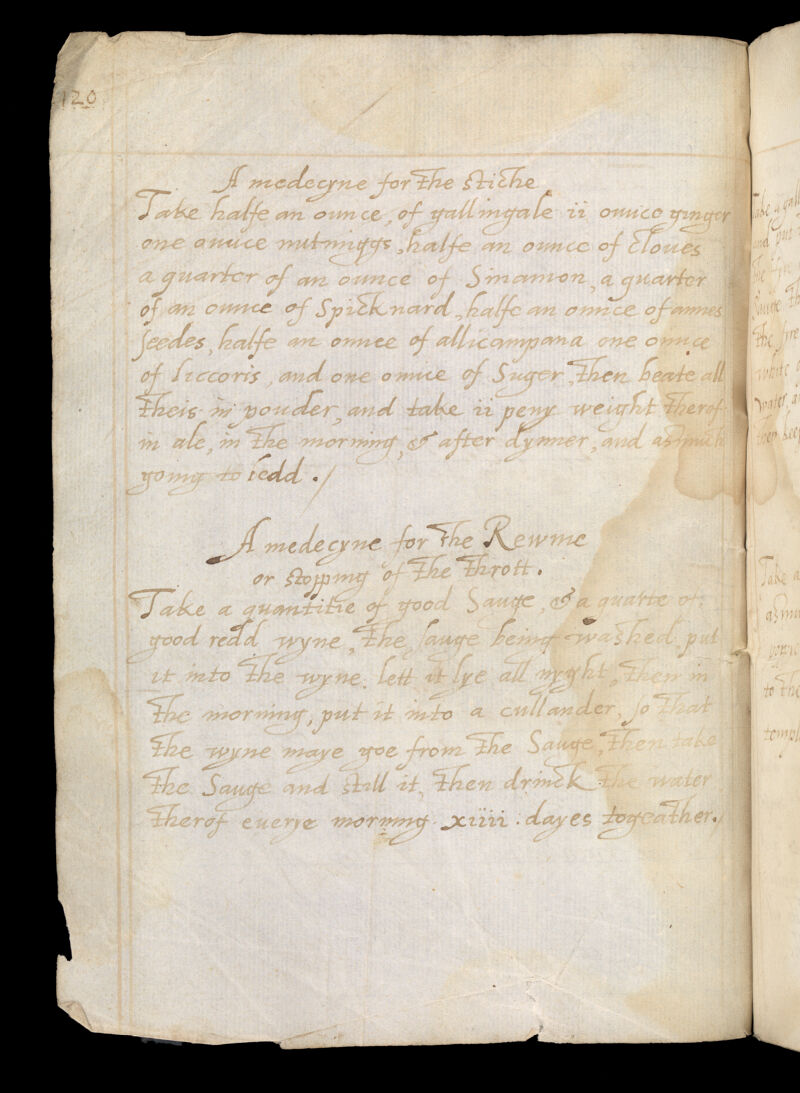 120
A medecyne for the stiche
Take halfe an ounce, of gallingale ii ounce ginger
one ounce nutmiggs, halfe an ounce of cloues
a quarter of an ounce of Sinamon, a quarter
of an ounce of Spicknard, halfe an ounce of annes
seedes, halfe an ounce of allicampana one ounce
of liccoris, and one ounce of Suger, then beate all
theis in pouder, and take ii peny weight therof
in ale, in the morning, & after dynner, and asmuch
going to bedd ./
A medecyne for the Rewme
or stopping of the thrott.
Take a quantitie of good Sauge, & a quarte of
good redd wyne, the sauge being washed put
it into the wyne. lett it lye all nyght, then in
the morning, put it into a cullander, so that
the wyne maye goe from the Sauge, then take
the Sauge and still it, then drinck the water
therof euerye morning xiiii : dayes togeather.
Take
and put
the
white
water
then
Take a
asmu
to the
templ